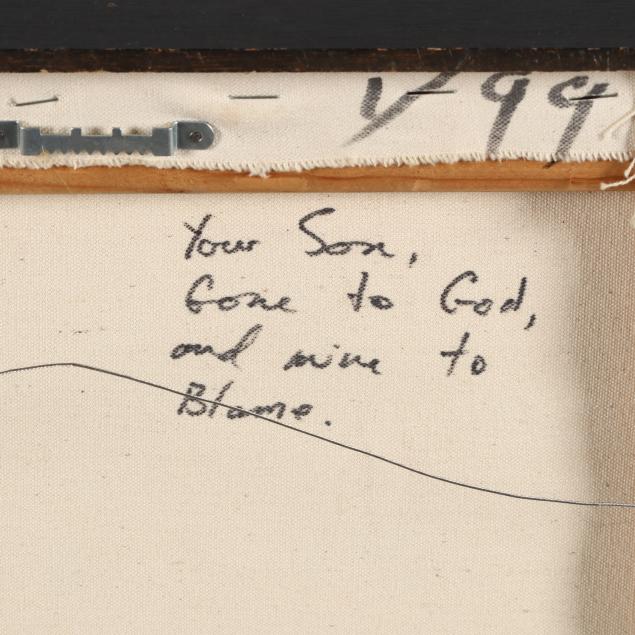 V99
Your Son,
Gone to God,
and mine to
Blame.